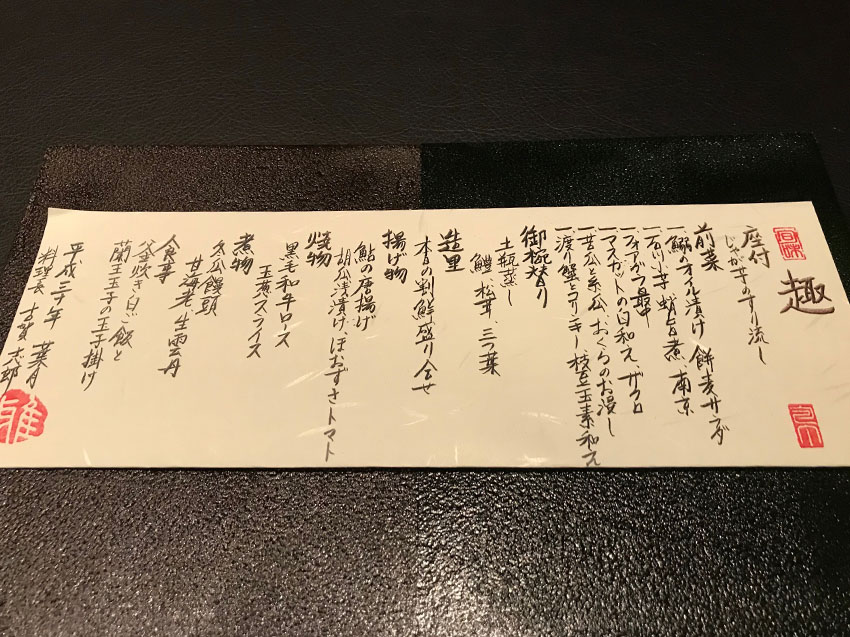 趣
座付
じゃが芋のすり流し
前菜
一、鰯のオイル漬け 餅麦サラダ
一、石川小芋 蛸旨煮 南京
一、フォアグラ最中
一、マスカットの白和え、ザクロ
一、苦瓜と糸瓜、おくらのお浸し
一、渡り蟹とコリンキー 枝豆玉素和え
御椀替り
土瓶蒸し
鱧、松茸、三つ葉
造里
本日の割鮮盛り合せ
揚げ物
鮎の唐揚げ
胡瓜浅漬け、ほおずきトマト
焼物
黒毛和牛ロース
玉葱スライス
煮物
冬瓜饅頭
甘海老 生雲丹
食事
釜炊き白ご飯と
蘭王玉子の玉子掛け
平成三十年 葉月
料理長 古賀
雅